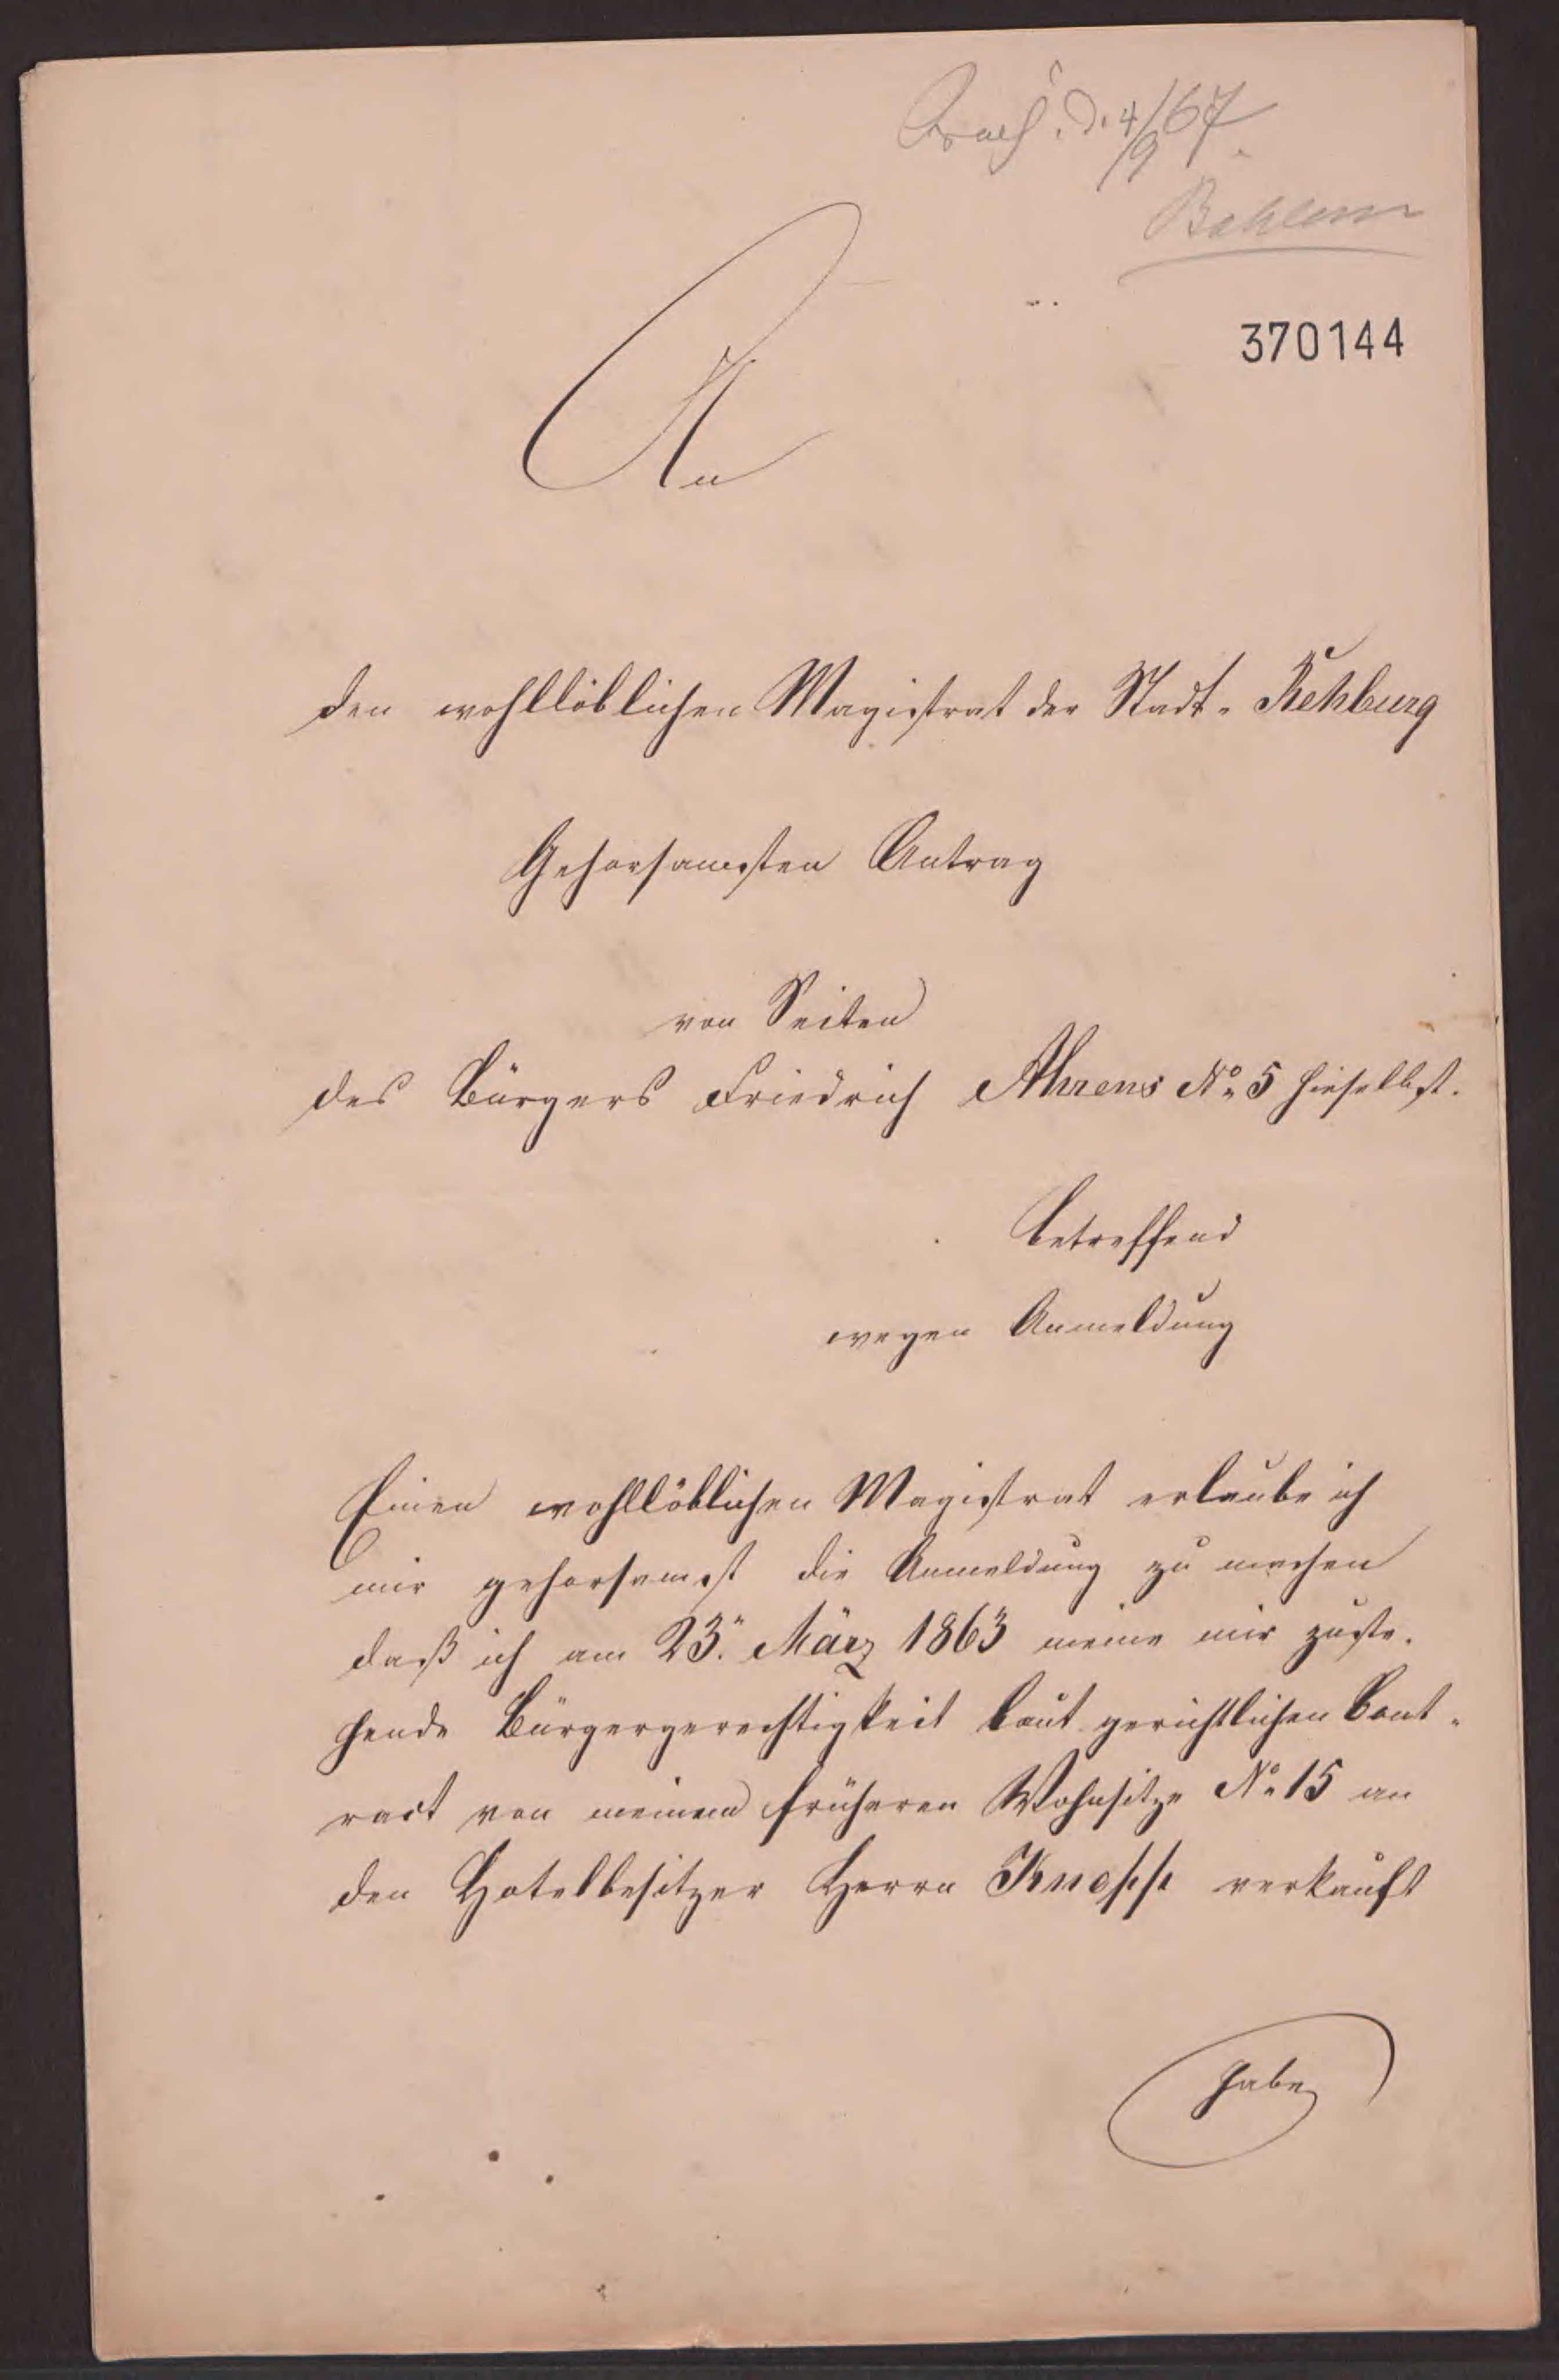 d. 4/9 67.
370144
An
den wohllöblichen Magistrat der Stadt-Rehburg
Gehorsamsten Antrag
von Seiten
des Bürgers Friedrich Ahrens No 5 hieselbst.
betreffend
wegen Anmeldung
Einen wohllöblichen Magistrat erlaube ich
mir gehorsamst die Anmeldung zu machen
daß ich am 23. März 1863 meine mir zuste-
hende Bürgergerechtigkeit laut gerichtlichen Cont-
ract von meinem früheren Wohnsitze No 15 an
den Hotelbesitzer Herrn Knopp verkauft
habe